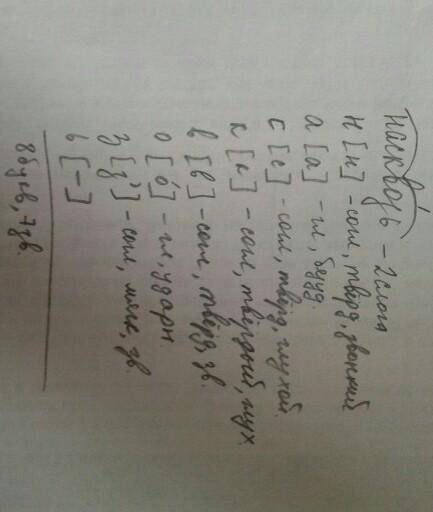 насквозь – 2 слога
н [н] – согл, твёрд, звонкий
а [а] – гл, безуд.
с [с] – согл, твёрд, глухой.
к [к] – согл, твёрдый, глух.
в [в] – согл, твёрд, зв.
о [о́] – гл, ударн
з [з'] – согл, мягк, зв
ь [–]
8 букв, 7 зв.